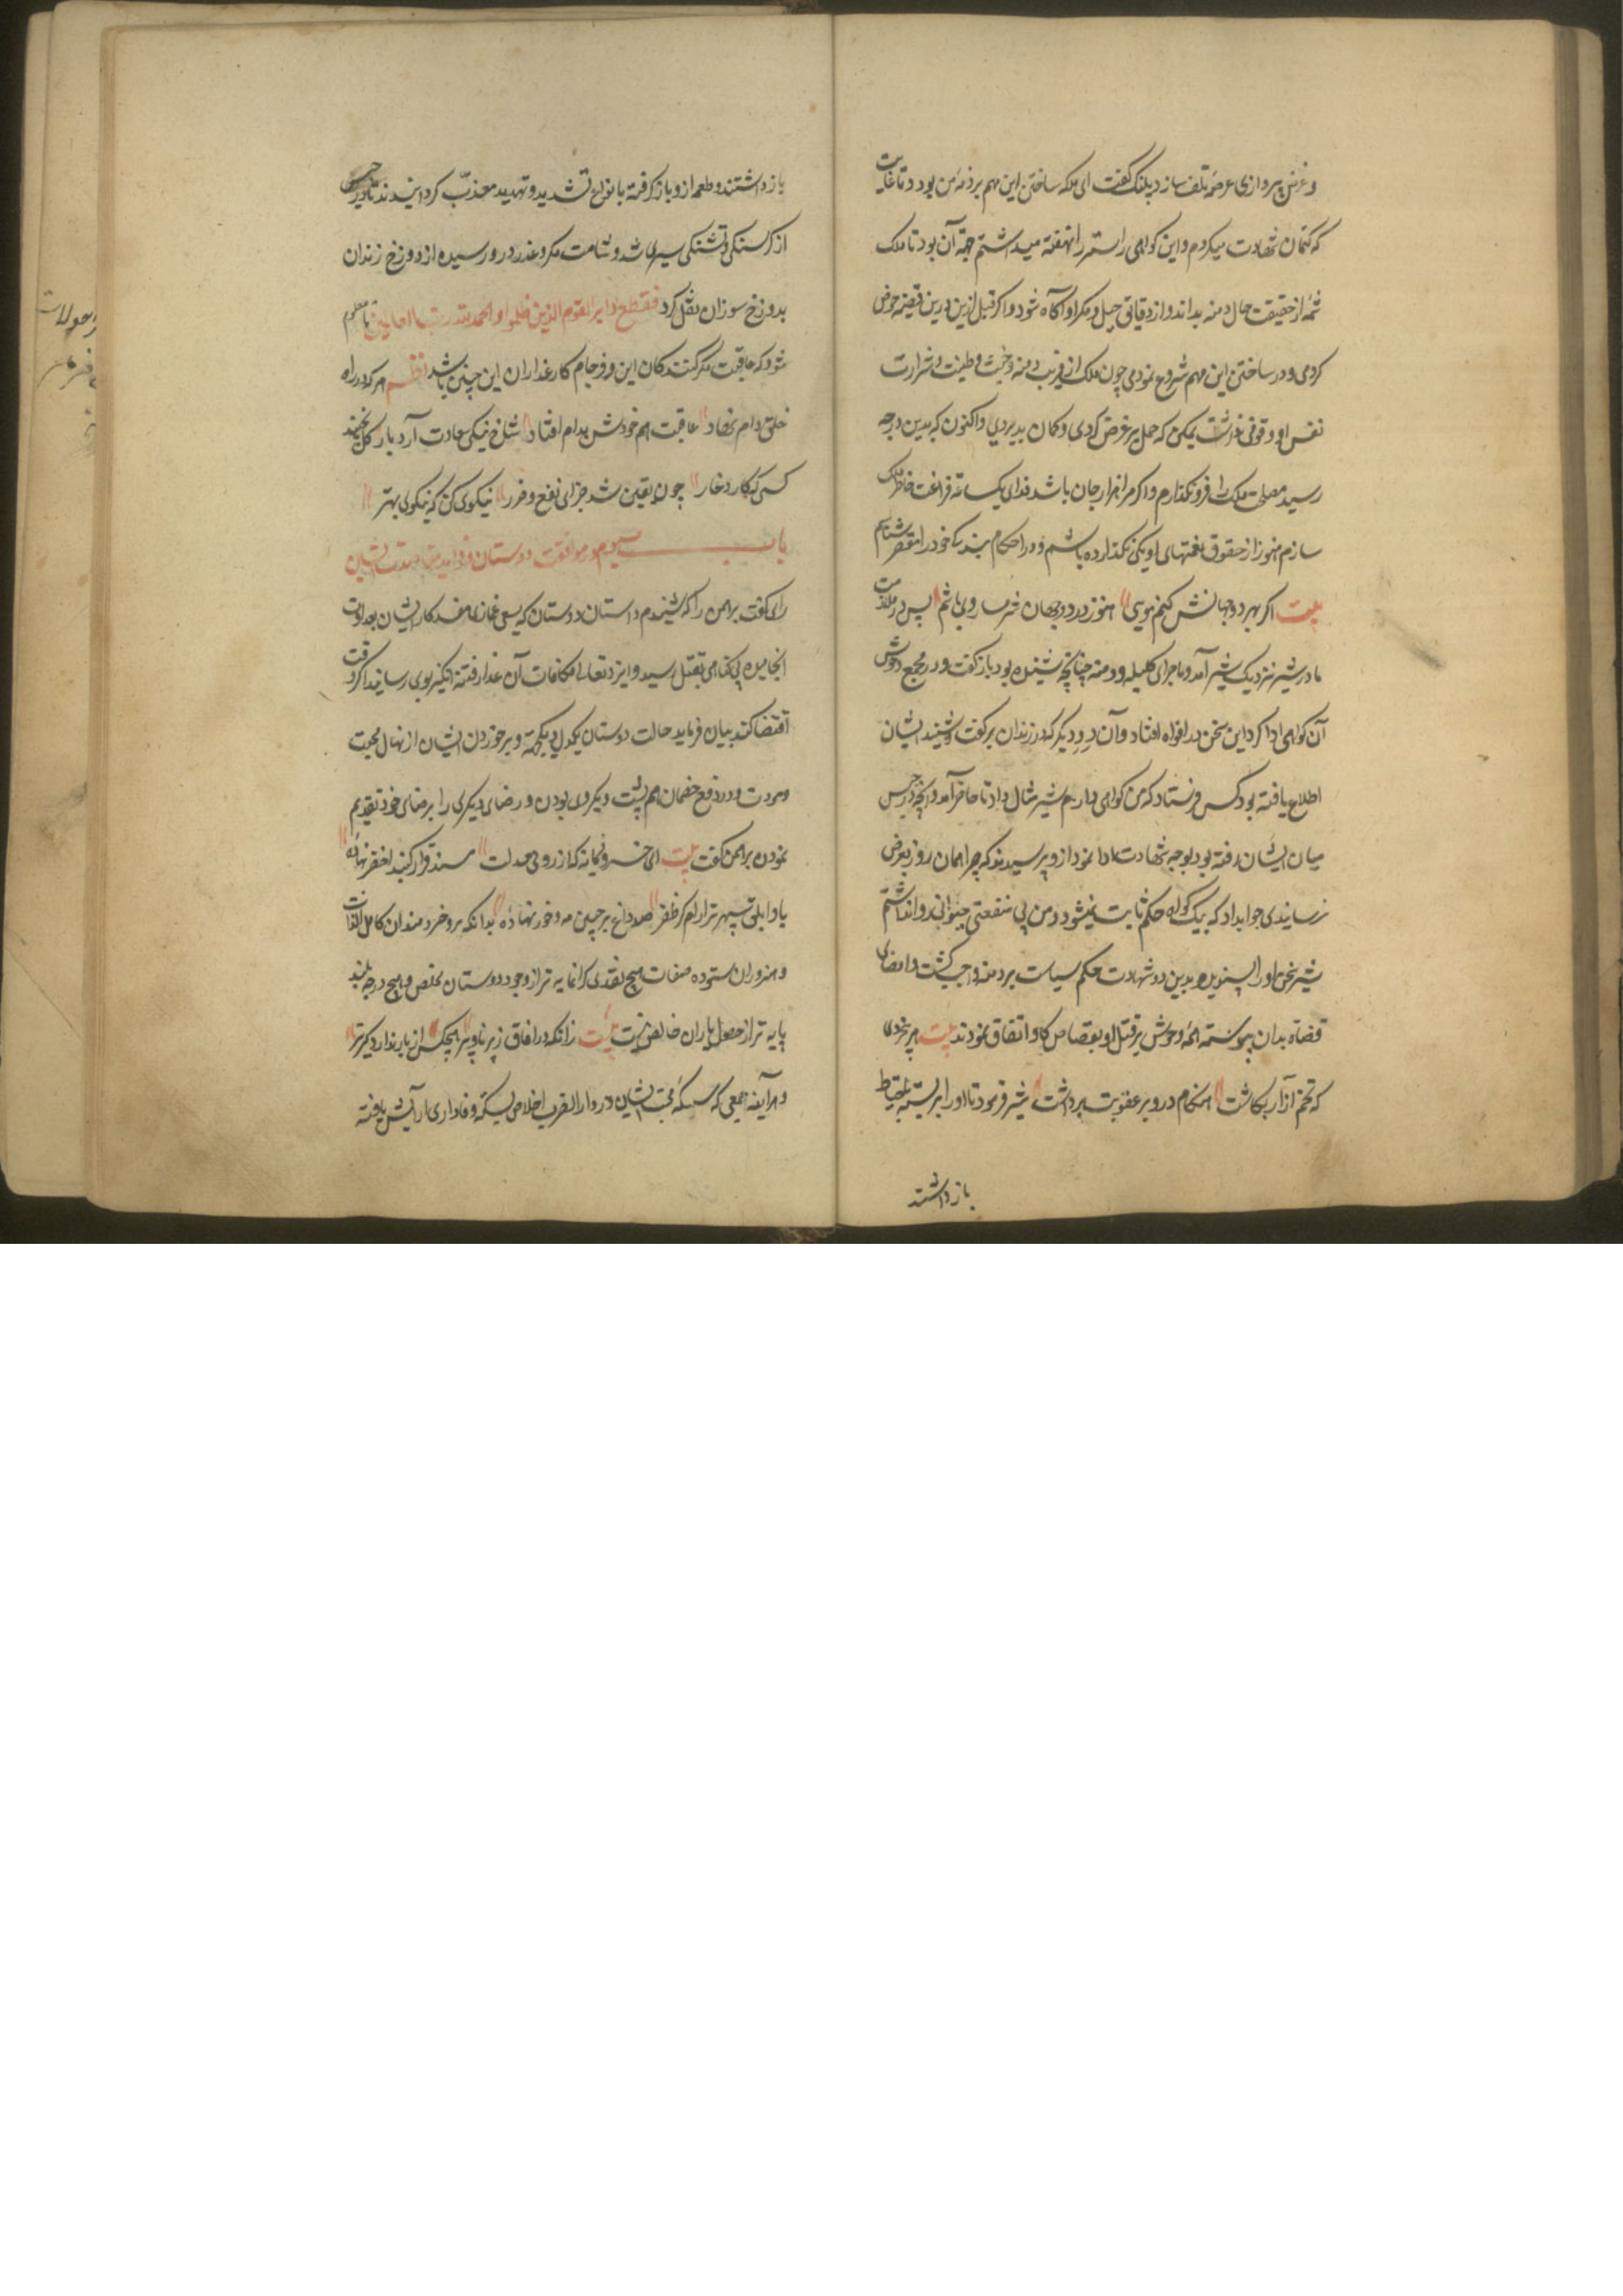 و غرض پردازی عرضهٔ تلف سازد پلنک کفت ای ملکه ساختن این مهم بر ذمهٔ من بود و تا غایت
که کتمان شهادت میکردم و این کواهی راستر را نهفته میداشتم جهة آن بود تا ملک
شمهٔ از حقیقت حال دمنه بداند و از دقایق حیل و مکر او آکاه شود و اکر قبل ازین درین قضیه خوض
کردمی و در ساختن این مهم شروع نمودمی چون ملک از فریب دمنه و خبث و طینت و شرارت
نفس او وقوفی نداشت یمکن که حمل بر غرض کردی و کمان بد بردی و اکنون که بدین درجه
رسید مصلحت ملک را فرو نکذارم و اکر مرا هزار جان باشد فدای یکساعته فراغت خاطر ملک
سازم هنوز از حقوق نعمتهای او یکی نکذارده باشم و در احکام بندکی خود را مقصر شناسم
بیت اکر بهر دو جهانش کنم نویی هنوز در دو جهان شرمسار وی باشم پس در ملازمت
مادر شیر نزدیک شیر آمد و ماجرای کلیله و دمنه چنانچه شنیده بود باز کفت و در مجمع وحوش
آن کواهی ادا کرد این سخن در افواه افتاد و آن دد دیکر که در زندان بر کفت و شنید ایشان
اطلاع یافته بود کس فرستاد که من کواهی دارم شیر مثال داد تا حاضر آمد و آنچه در حبس
میان ایشان رفته بود بوجه شهادت ادا نمود ازو پرسیدند که چرا همان روز بعرض
نرسانیدی جواب داد که بیک کواه حکم ثابت نمیشود و من بی منفعتی حیوانی روا نداشتم
شیر سخن او را پسندیده بدین دو شهادت حکم سیاست بر دمنه واجب کشت و امضای
قضاة بدان پیوسته همهٔ وحوش بر قتل او بقصاص کاو اتفاق نمودند بیت هر بخردی
که تخم آزار بکاشت هنکام درو بر عقوبت برداشت شیر فرمود تا او را بربسته باحتیاط
بازداشتند
بازداشتند و طعمه ازو باز کرفته بانواع تشدید و تهدید معذب کردانیدند تا در حبس
از کرسنکی و تشنکی سپری شد و شامت مکر و غدر در و رسیده از دوزخ زندان
بدوزخ سوزان نقل کرد فقطع دابر القوم الذین ظلموا و الحمد لله رب العالمین تا معلوم
شود که عاقبت مکر کنندکان این و فرجام کار غداران این چنین باشد نظم هر که در راه
خلق دام نهاد عاقبت هم خودش بدام افتاد شاخ نیکی سعادت آرد بار کل نچیند
کسی که کارد خار چون یقین شد جزای نفع و ضرر نیکوی کن که نیکوی بهتر
باب سیوم در موافقت دوستان و فواید
رای کفت برهمن را که شنیدم داستان دوستان که بسعی غماز مفسد کار ایشان بعداوت
انجامیده بی کناهی بقتل رسید و ایزد تعالی مکافات آن غدار فتنه انکیز بوی رسانید اکر وقت
اقتضا کند بیان فرماید حالت دوستان یکدل و یکجهة و برخوردن ایشان از نهال محبت
و مودت و در دفع خصمان هم پشت و یکروی بودن و رضای دیکری را برضای خود تقدیم
نمودن برهمن کفت بیت ای خسرو زمانه که از روی معدلت مسند فراز کنبد اخضر نهادهٔ
با ابلق سپهر ترا رام کر ظفر صد داغ بر جبین مه و خور نهادهٔ بدانکه نزد خردمندان کامل الذات
و هنروران ستوده صفات هیچ نقدی کرانمایه تر از وجود دوستان مخلص و هیچ درجه بلند
پایه تر از حصول یاران خالص نیست بیت زانکه در افاق زیر ناو پیر هیچکس از یار ندارد کزیر
و هر آینه جمعی که سکهٔ محبت ایشان در دار الضرب اخلاص بسکه وفاداری آرایش یافته